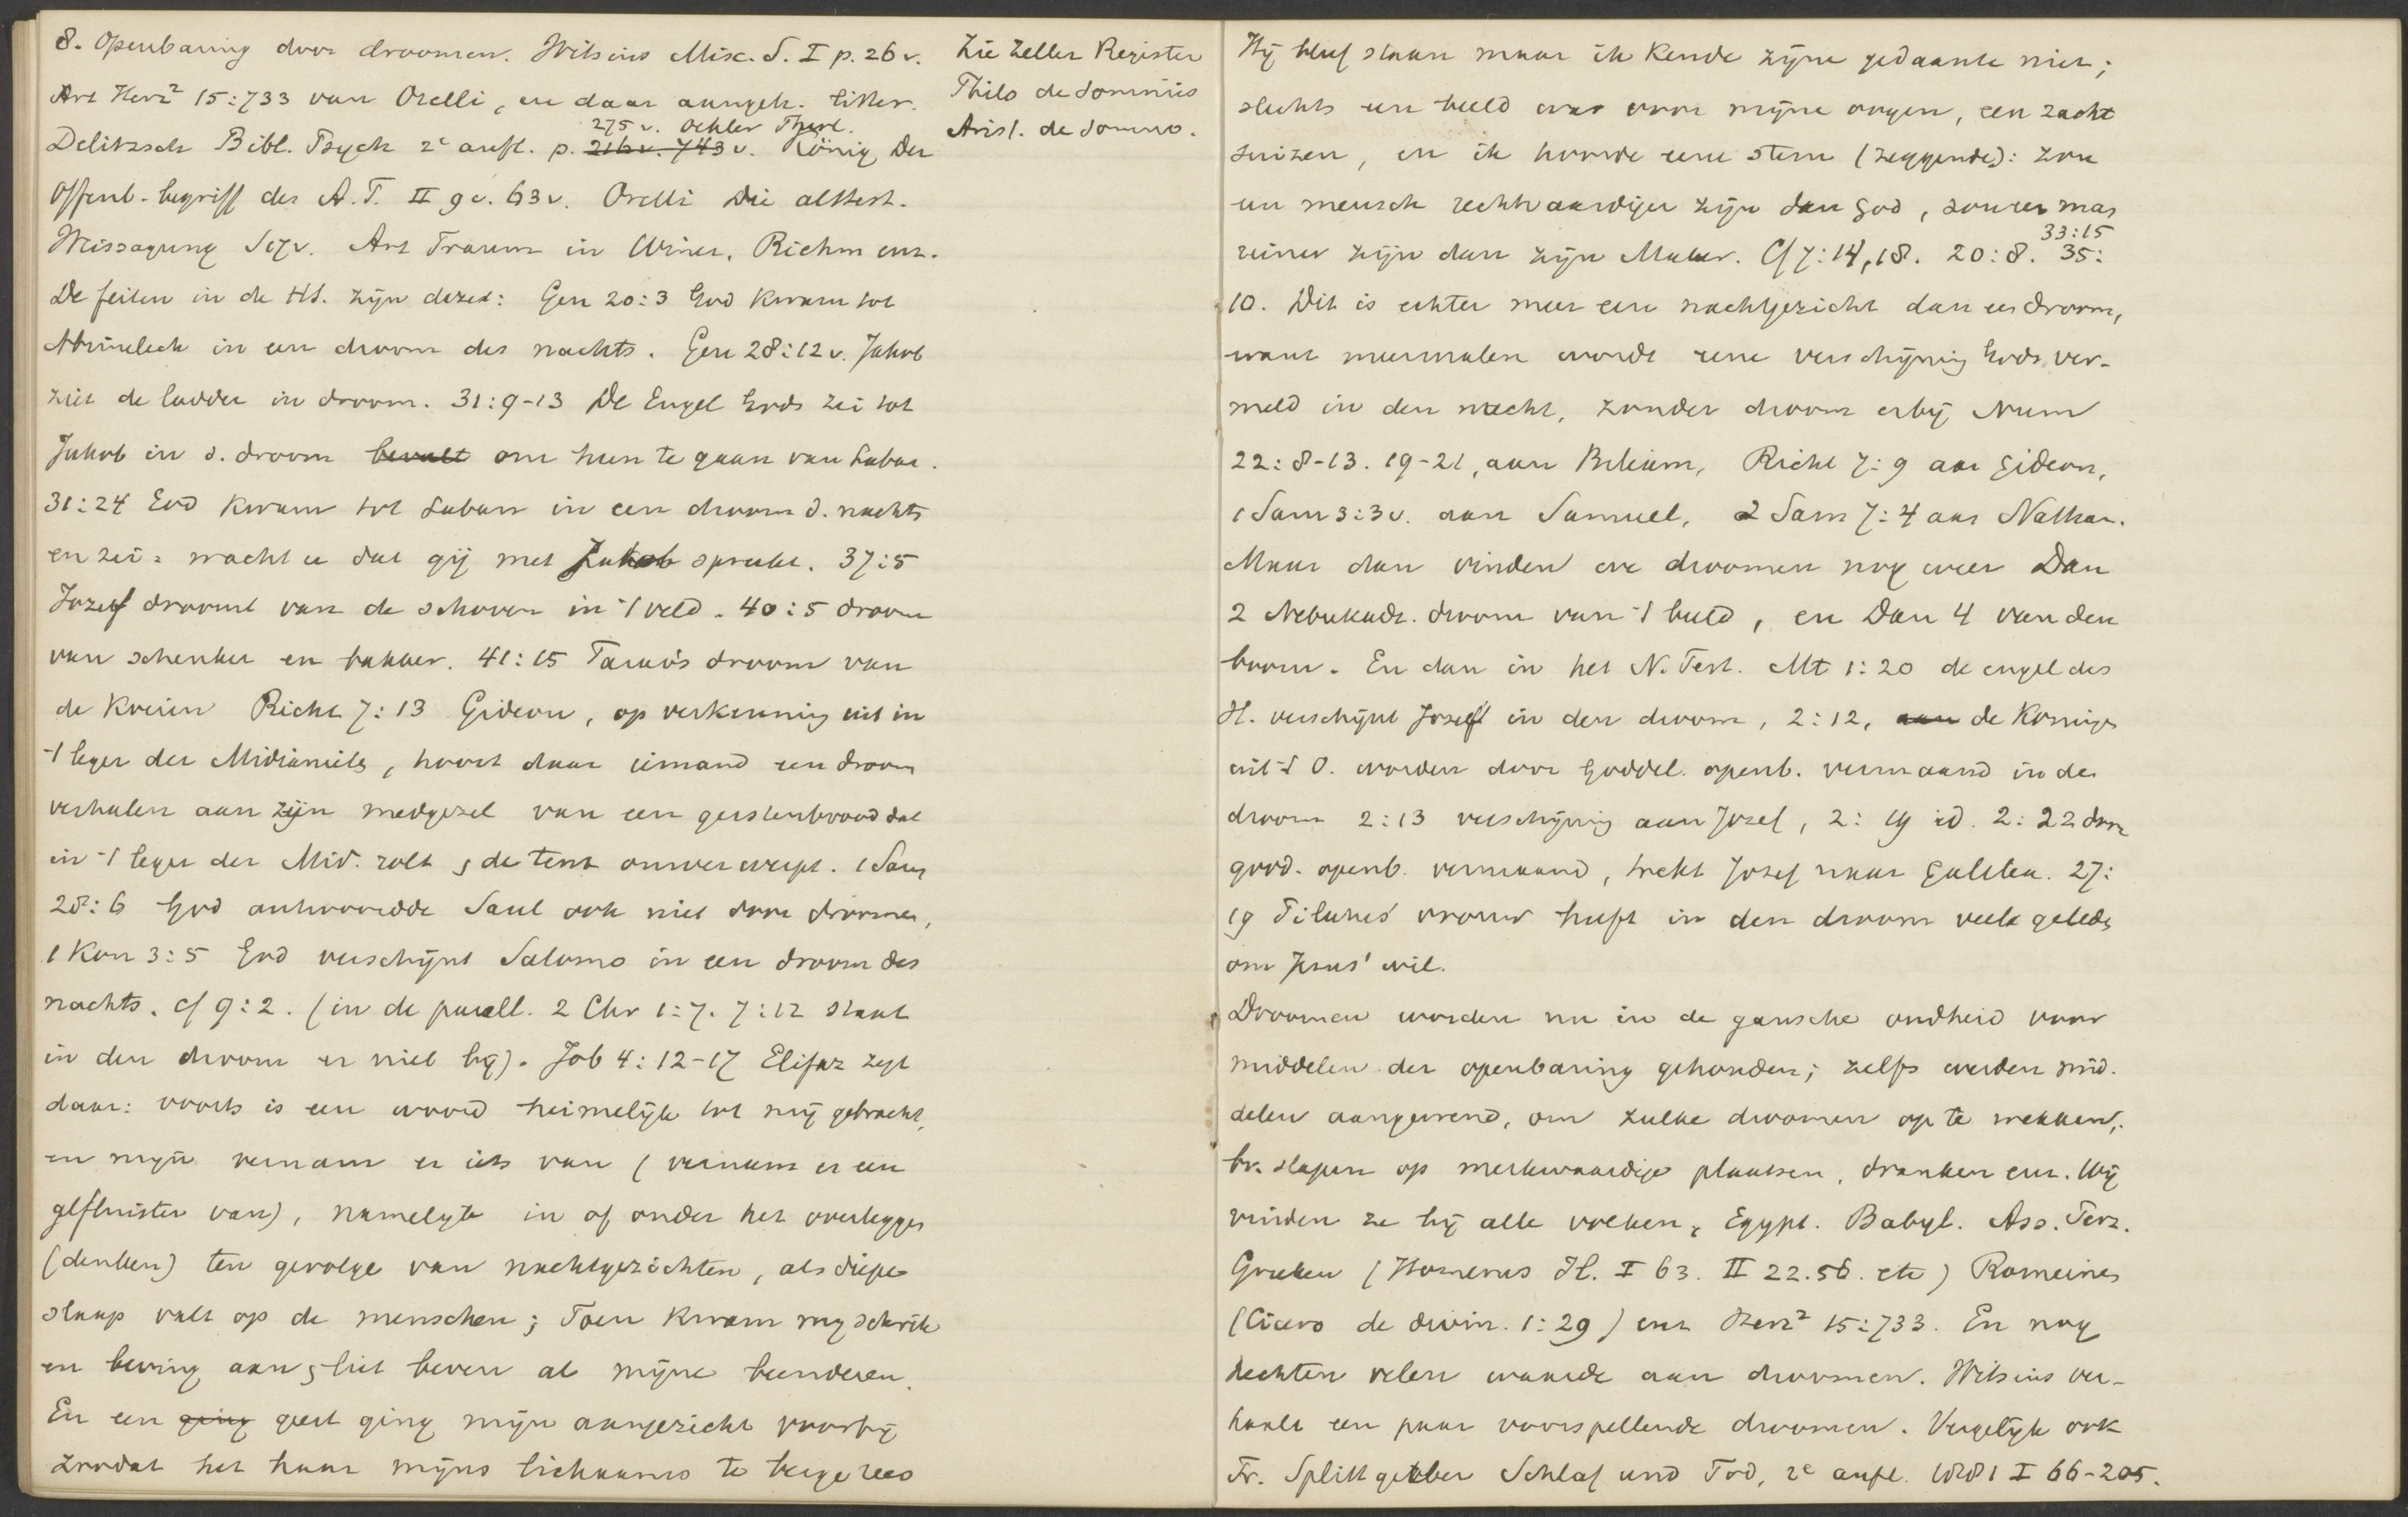 8. Openbaring door droomen. Witsius Misc. S. I p. 26 v.
Art Herz² 15:733 van Orelli, en daar aangeh. litter.
275 v. Oehler Theol.
Delitzsch Bibl. Psych 2e aufl. p. 216 v. 743 v. König Der
Offenb.-begriff des A.T. II 9 v. 63 v. Orelli Die alttest.
Weissagung S 17 v. Art Traum in Winer, Riehm enz.
De feiten in de HS. zijn deze: Gen 20:3 God kwam tot
Abimelech in een droom des nachts. Gen 28:12 v. Jakob
ziet de ladder in droom. 31:9-13 De Engel Gods zei tot
Jakob in d. droom beveelt om heen te gaan van Laban.
31:24 God kwam tot Laban in een droom d. nachts
en zei: wacht u dat gij met Jakob spreekt. 37:5
Jozef droomt van de schoven in 't veld. 40:5 droom
van schenker en bakker. 41:15 Farao's droom van
de koeien Richt 7:13 Gideon, op verkenning uit in
't leger der Midianiets, hoort daar iemand een droom
verhalen aan zijn medgezel van een gerstenbrood dat
in 't leger der Mid. rolt & de tent omverwerpt. 1 Sam
28:6 God antwoordde Saul ook niet door droomen,
1 Kon 3:5 God verschijnt Salomo in een droom des
nachts. cf 9:2. (in de parall. 2 Chr 1:7. 7:12 staat
in den droom er niet bij). Job 4:12-17 Elifaz zegt
daar: voorts is een woord heimelijk tot mij gebracht,
en mijn vernam er iets van (vernam er een
gefluister van), namelijk in of onder het overleggen
(denken) ten gevolge van nachtgezichten, als diepe
slaap valt op de menschen; Toen kwam mij schrik
en beving aan & liet beven al mijne beenderen.
En een ging geest ging mijn aangezicht voorbij
zoodat het haar mijns lichaams te berge rees
Zie Zeller Register
Philo de somniis
Arist. de somno.
Hij bleef staan maar ik kende zijne gedaante niet;
slechts een beeld was voor mijne oogen, een zacht
suizen, en ik hoorde eene stem (zeggende): zou
een mensch rechtvaardiger zijn dan God, zou een man
33:15
reiner zijn dan zijn Maker. Cf 7:14, 18. 20:8. 35:
10. Dit is echter meer een nachtgezicht dan een droom,
want meermalen wordt eene verschijning Gods ver-
meld in den nacht, zonder droom erbij Num
22:8-13. 19-21, aan Bileam, Richt 7:9 aan Gideon,
1 Sam 3:3 v. aan Samuel, 2 Sam 7:4 aan Nathan.
Maar dan vinden we droomen nog weer Dan
2 Nebukadz. droom van 't beeld, en Dan 4 van den
boom. En dan in het N. Test. Mt 1:20 de engel des
H. verschijnt Jozef in den droom, 2:12, aan de Koningen
uit 't O. worden door Goddel. openb. vermaand in den
droom 2:13 verschijning aan Jozef, 2:19 id. 2:22 door
godd. openb. vermaand, trekt Jozef naar Galilea. 27:
19 Pilatus' vrouw heeft in den droom veel geleden
om Jezus' wil.
Droomen worden nu in de gansche oudheid voor
middelen der openbaring gehouden; zelfs werden mid-
delen aangewend, om zulke droomen op te wekken,
bv. slapen op merkwaardige plaatsen, dranken enz. Wij
vinden ze bij alle volken, Egypt. Babyl. Ass. Perz.
Grieken (Homerus Il. I 63. II 22.56. etc) Romeinen
(Cicero de divin. 1:29) enz Herz² 15:733. En nog
hechten velen waarde aan droomen. Witsius ver-
haalt een paar voorspellende droomen. Vergelijk ook
Fr. Splittgerber Schlaf und Tod, 2e aufl. 1881 I 66-205.